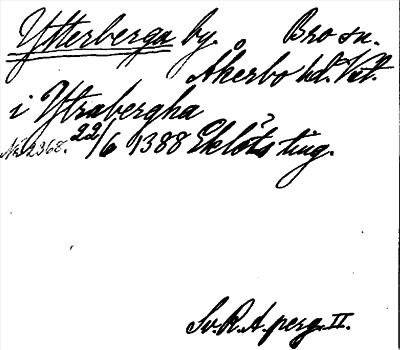 Ytterberga by. Bro sn.
Åkerbo hd. Vstm.
i Ytrabergha
Nr 2368. 22/6 1388 Eklöts ting.
?
Sv. R. A. perg. II.